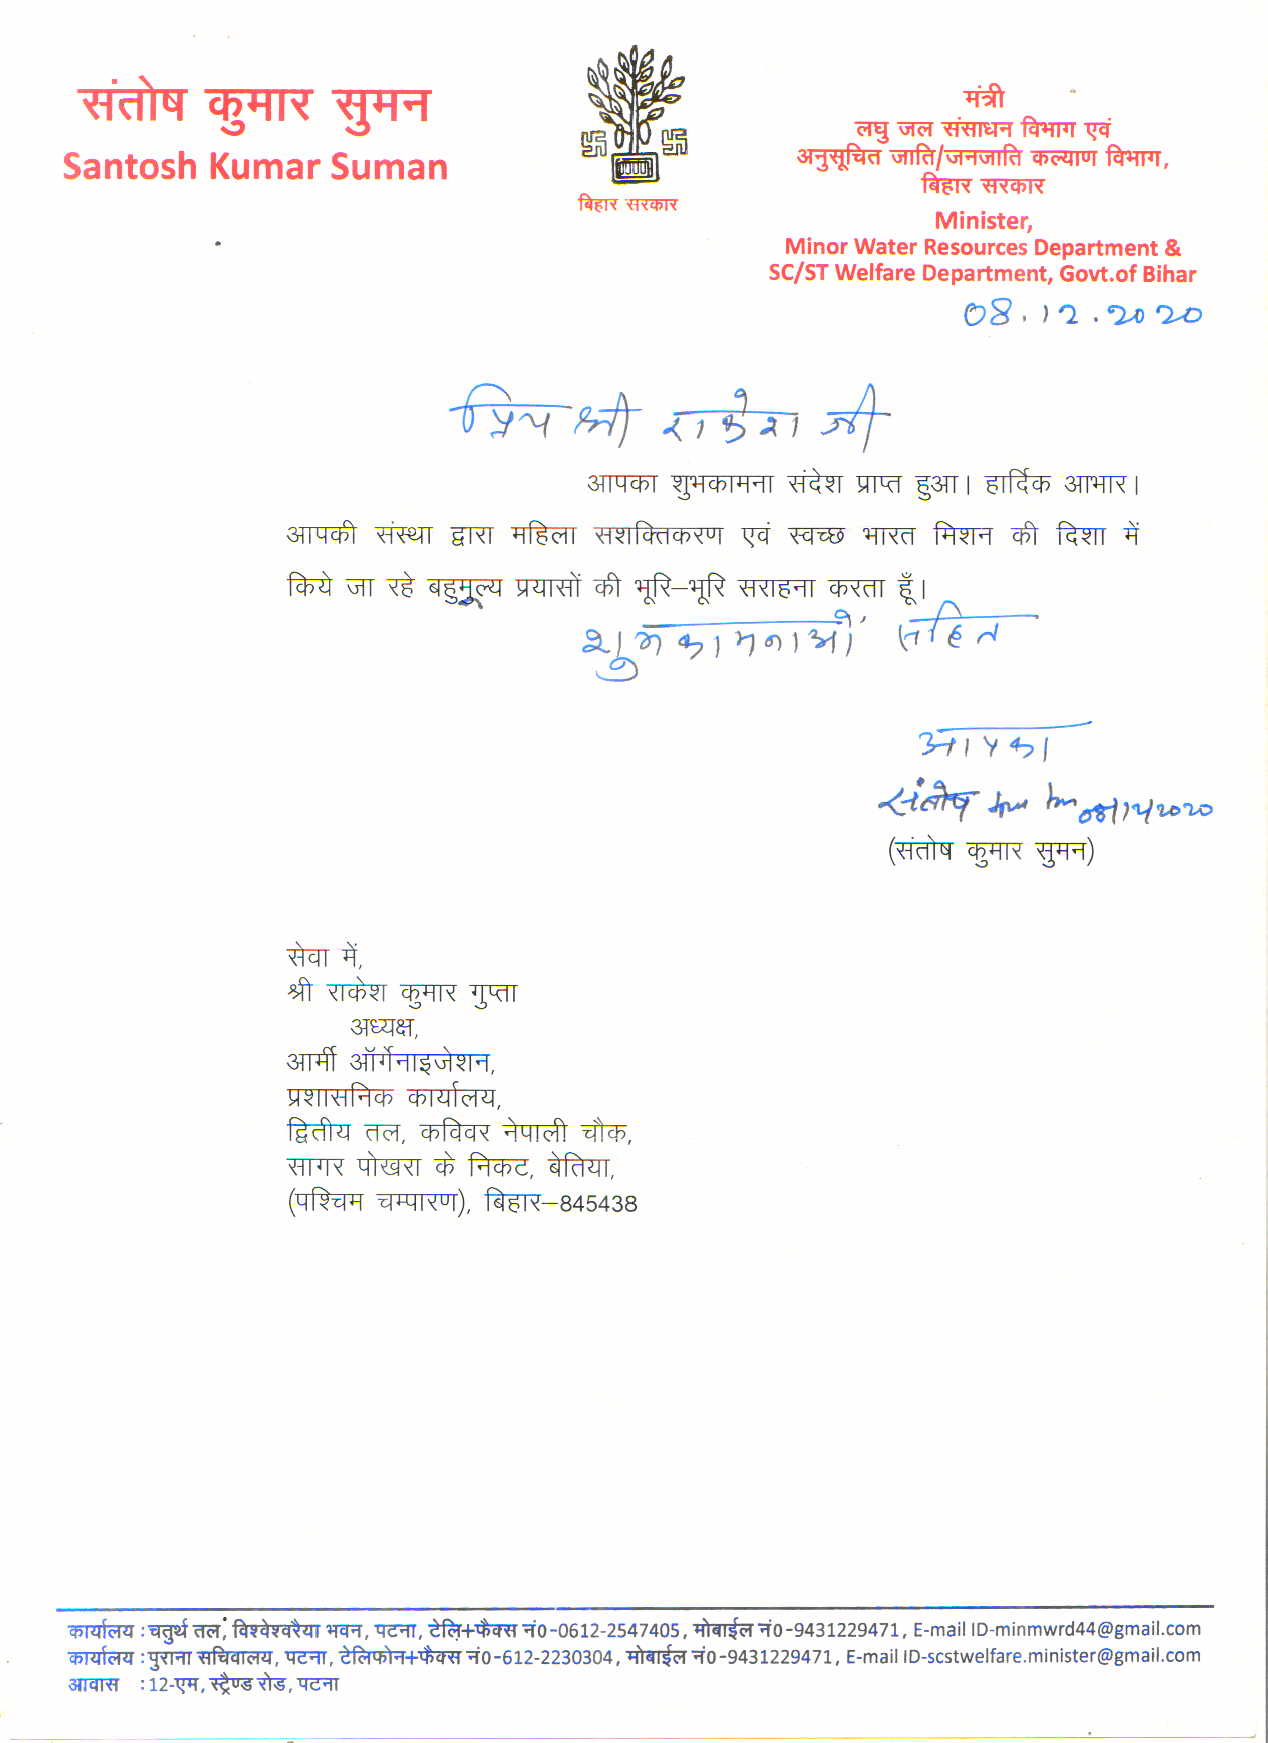 संतोष कुमार सुमन
Santosh Kumar Suman
बिहार सरकार
मंत्री
लघु जल संसाधन विभाग एवं
अनुसूचित जाति/जनजाति कल्याण विभाग,
बिहार सरकार
Minister,
Minor Water Resources Department &
SC/ST Welfare Department, Govt.of Bihar
08.12.2020
प्रिय श्री राकेश जी
आपका शुभकामना संदेश प्राप्त हुआ। हार्दिक आभार।
आपकी संस्था द्वारा महिला सशक्तिकरण एवं स्वच्छ भारत मिशन की दिशा में
किये जा रहे बहुमूल्य प्रयासों की भूरि–भूरि सराहना करता हूँ।
शुभकामनाओं सहित
आपका
संतोष 08/12/2020
(संतोष कुमार सुमन)
सेवा में,
श्री राकेश कुमार गुप्ता
अध्यक्ष,
आर्मी ऑर्गेनाइजेशन,
प्रशासनिक कार्यालय,
द्वितीय तल, कविवर नेपाली चौक,
सागर पोखरा के निकट, बेतिया,
(पश्चिम चम्पारण), बिहार–845438
कार्यालय : चतुर्थ तल, विश्वेश्वरैया भवन, पटना, टेलि+फैक्स नं0-0612-2547405, मोबाईल नं0-9431229471, E-mail ID-minmwrd44@gmail.com
कार्यालय : पुराना सचिवालय, पटना, टेलिफोन+फैक्स नं0-612-2230304, मोबाईल नं0-9431229471, E-mail ID-scstwelfare.minister@gmail.com
आवास : 12-एम, स्ट्रैण्ड रोड, पटना